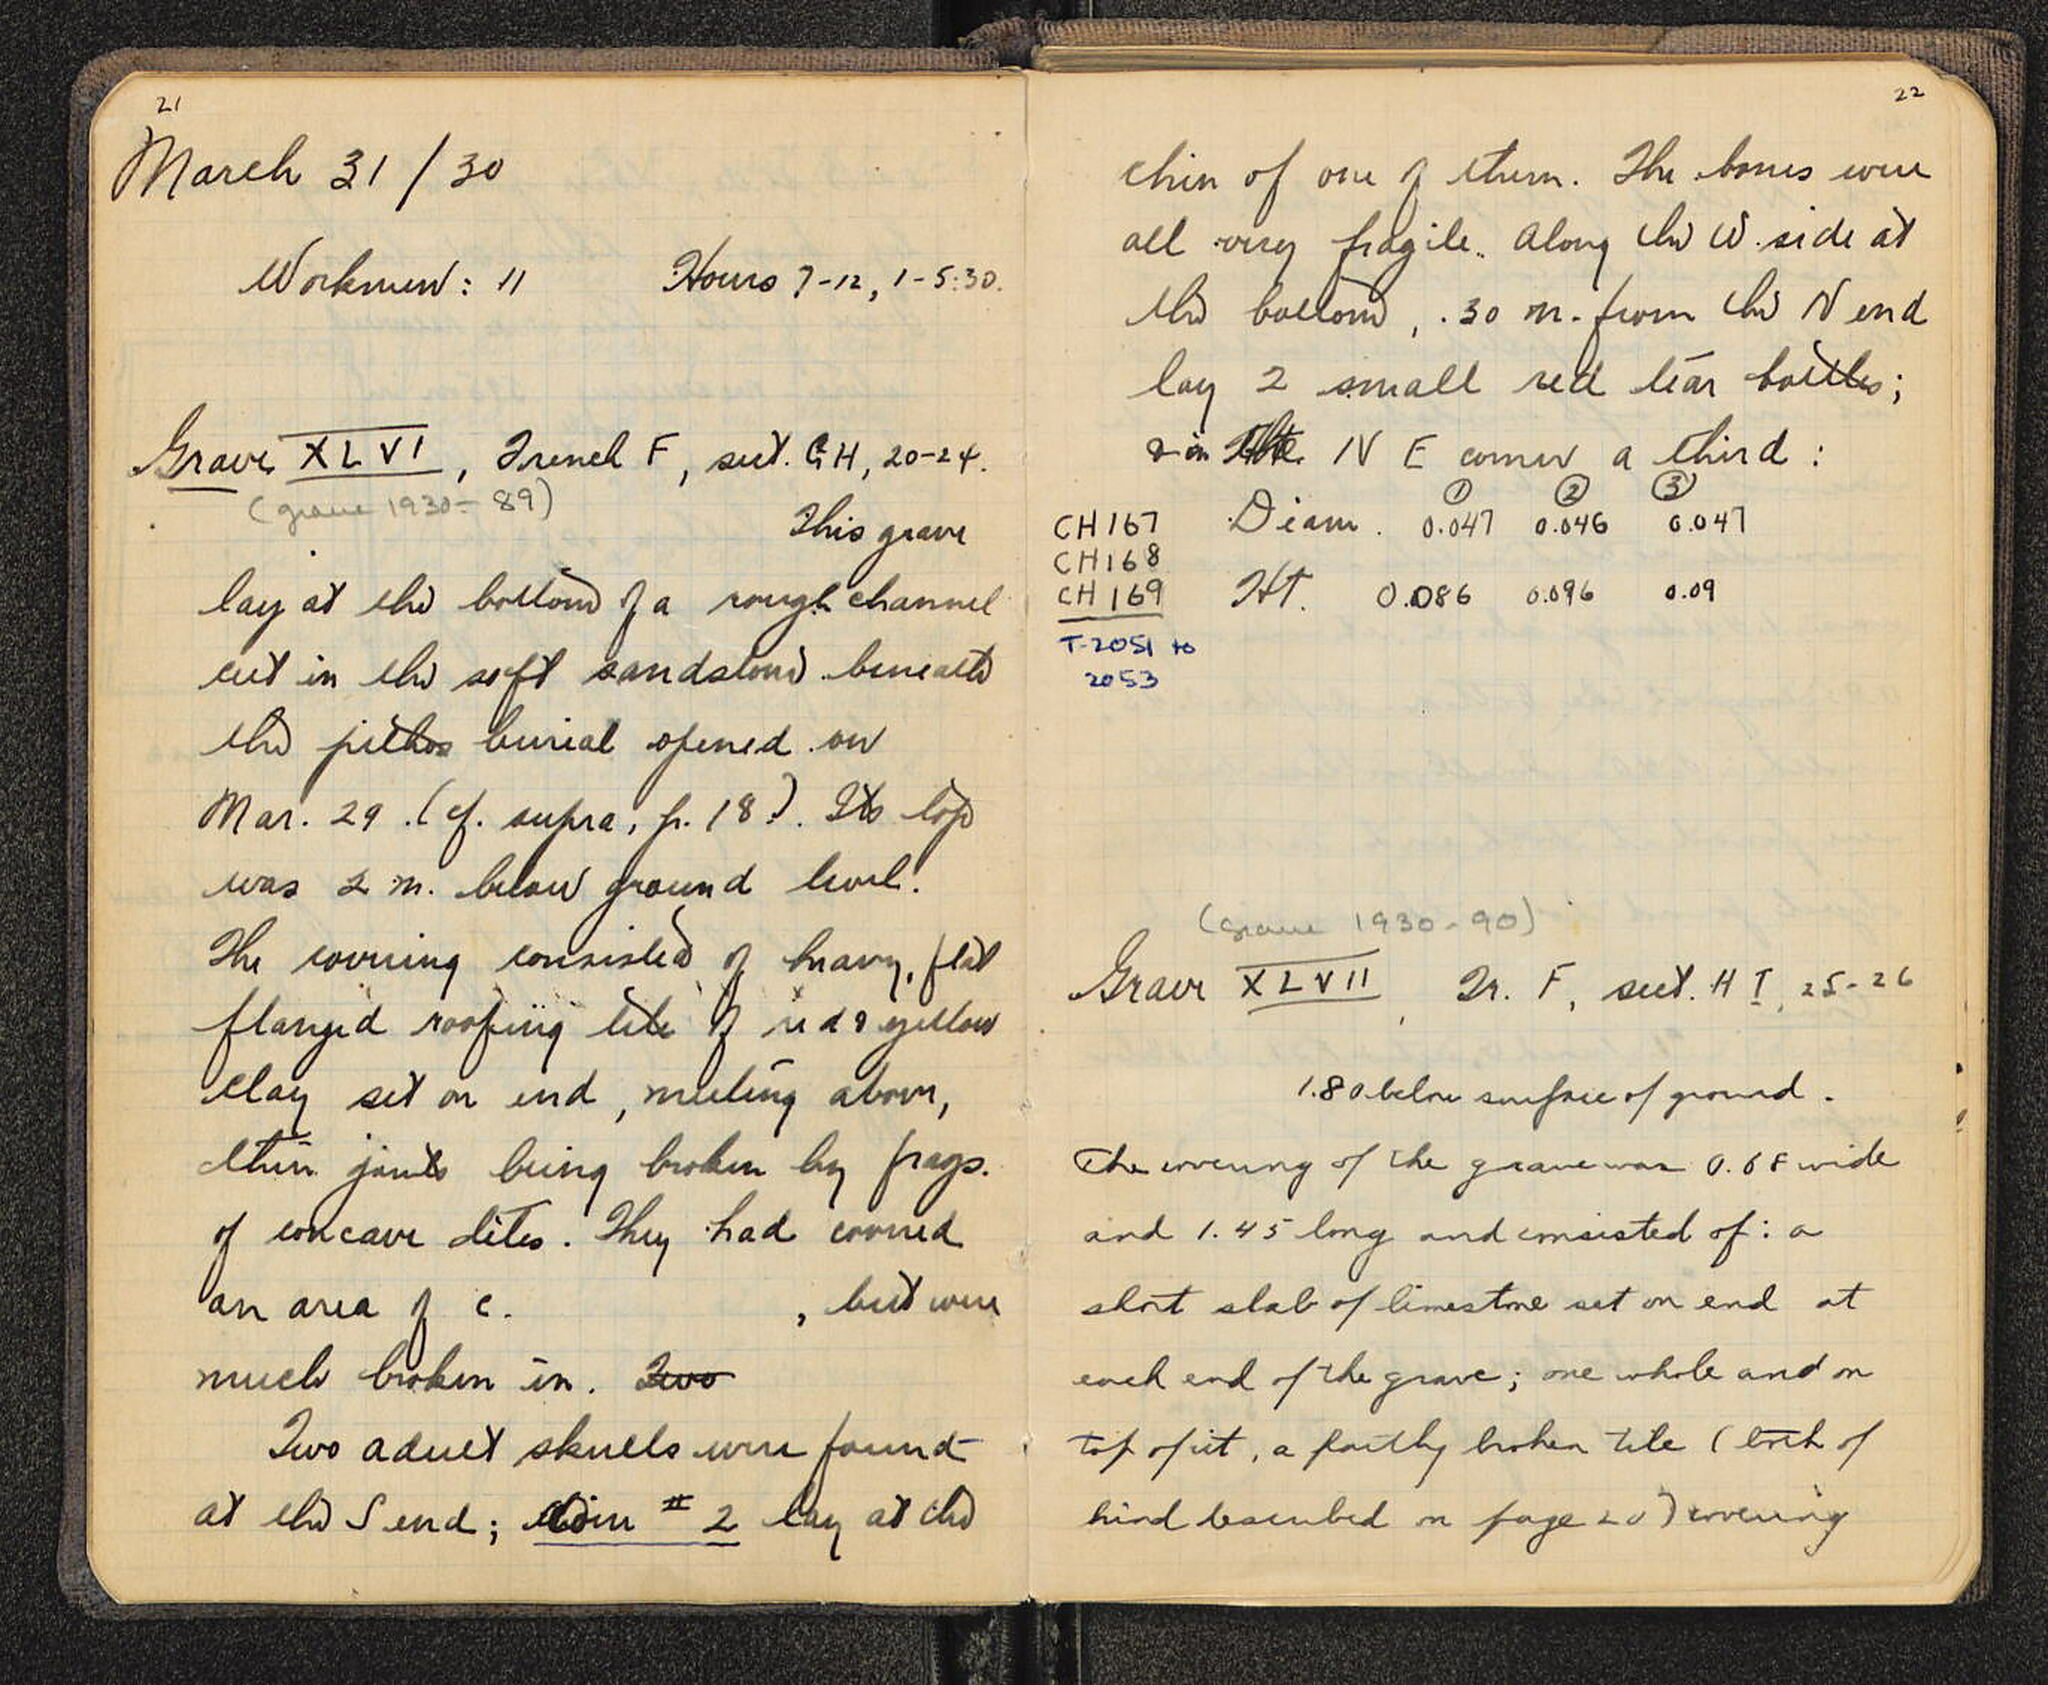 21
March 31/30
Workmen: 11 Hours 7-12, 1-5:30.
Grave XLVI, Trench F, sect. GH, 20-24.
(grave 1930-89)
This grave
lay at the bottom of a rough channel
cut in the soft sandstone beneath
the pithos burial opened on
Mar. 29 (cf. supra, p. 18). Its top
was 2 m. below ground level.
The covering consisted of heavy, flat
flanged roofing tile of red & yellow
clay set on end, meeting above,
their joints being broken by frags.
of concave tiles. They had covered
an area of c. , but were
much broken in. Two
Two adult skulls were found
at the S end; coin #2 lay at the
22
chin of one of them. The bones were
all very fragile. Along the W. side at
the bottom, .30 m. from the N end
lay 2 small red tear bottles;
& in the N E corner a third:
① ② ③
CH167 Diam. 0.047 0.046 0.047
CH168
CH169 Ht. 0.086 0.096 0.09
T-2051 to
2053
(grave 1930-90)
Grave XLVII, Tr. F, sect. H I, 25-26
1.80 below surface of ground.
The covering of the grave was 0.68 wide
and 1.45 long and consisted of: a
short slab of limestone set on end at
each end of the grave; one whole and on
top of it, a partly broken tile (both of
kind described on page 20) covering